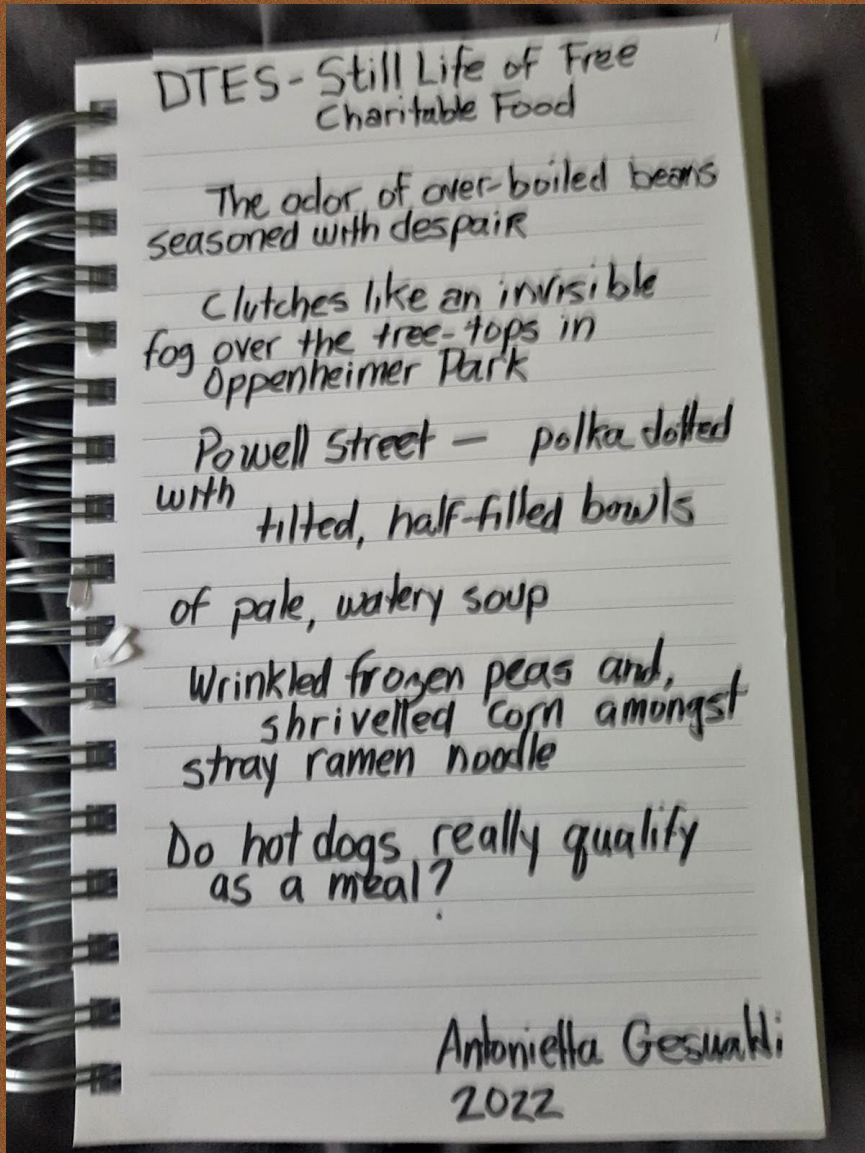 DTES - Still Life of Free
Charitable Food
The odor of over-boiled beans
seasoned with despair
Clutches like an invisible
fog over the tree-tops in
Oppenheimer Park
Powell Street — polka dotted
with
tilted, half-filled bowls
of pale, watery soup
Wrinkled frozen peas and,
shrivelled corn amongst
stray ramen noodle
Do hot dogs really qualify
as a meal?
Antonietta Gesualdi
2022